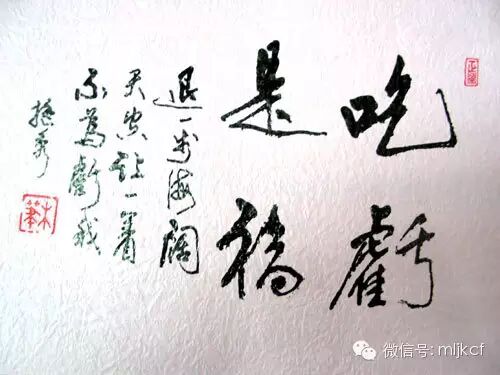 吃虧
是福
退一步海闊
天空讓一着
不為虧我
微信号: mljkcf